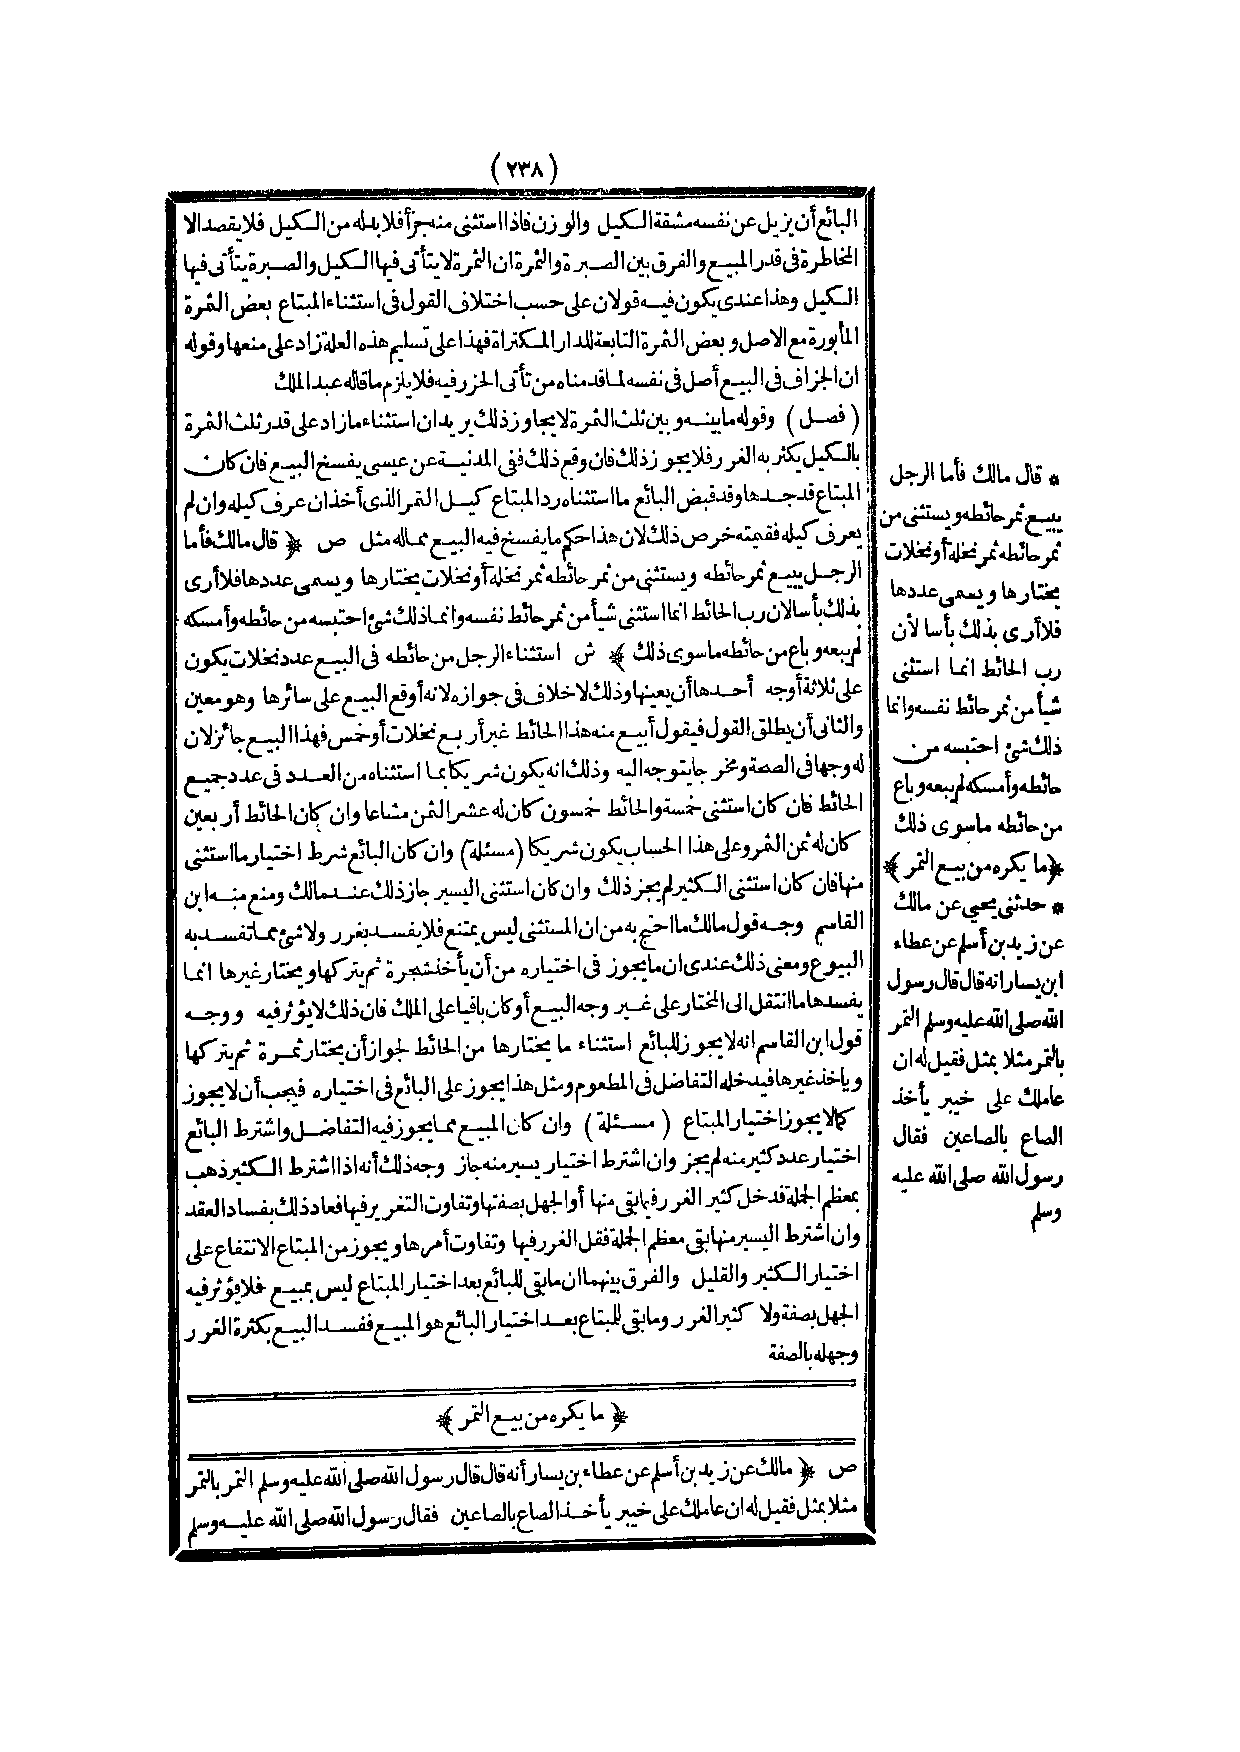 (٢٣٨)
البائع أن يزيل عن نفسه مشقة الكيل والوزن فاذا استثنى منه جزأ فلا بد له من الكيل فلا يقصد الا
المخاطرة فى قدر المبيع والفرق بين الصبرة والثمرة ان الثمرة لا يتأتى فيها الكيل والصبرة يتأتى فيها
الكيل وهذا عندى يكون فيه قولان على حسب اختلاف القول فى استثناء المبتاع بعض الثمرة
المأبورة مع الاصل وبعض الثمرة التابعة للدار المكتراة فهذا على تسليم هذه العلة زاد على منعها وقوله
ان الجزاف فى البيع أصل فى نفسه لما قدمناه من تأتى الحزر فيه فلا يلزم ما قاله عبد الملك
(فصل) وقوله ما بينه وبين ثلث الثمرة لا يجاوز ذلك يريد ان استثناء ما زاد على قدر ثلث الثمرة
بالكيل يكثر به الغرر فلا يجوز ذلك فان وقع ذلك ففى المدنية عن عيسى يفسخ البيع فان كان
المبتاع قد جدها وقد قبض البائع ما استثناه رد المبتاع كيل الثمر الذى أخذ ان عرف كيله وان لم
يعرف كيله فقيمته خرص ذلك لان هذا حكم ما يفسخ فيه البيع مما له مثل ص ﴿ قال مالك فأما
الرجل يبيع ثمر حائطه ويستثنى من ثمر حائطه ثمر نخلة أو نخلات يختارها ويسمى عددها فلا أرى
بذلك بأسا لان رب الحائط انما استثنى شيأ من ثمر حائط نفسه وانما ذلك شئ احتبسه من حائطه وأمسكه
لم يبعه وباع من حائطه ما سوى ذلك ﴾ ش استثناء الرجل من حائطه فى البيع عدد نخلات يكون
على ثلاثة أوجه أحدها أن يعينها وذلك لا خلاف فى جوازه لانه أوقع البيع على سائرها وهو معين
والثانى أن يطلق القول فيقول أبيع منه هذا الحائط غير أربع نخلات أو خمس فهذا البيع جائز لان
له وجها فى الصحة ومخرجا يتوجه اليه وذلك انه يكون شريكا بما استثناه من العدد فى عدد جميع
الحائط فان كان استثنى خمسة والحائط خمسون كان له عشر الثمن مشاعا وان كان الحائط أربعين
كان له ثمن الثمر وعلى هذا الحساب يكون شريكا (مسئلة) وان كان البائع شرط اختيار ما استثنى
منها فان كان استثنى الكثير لم يجز ذلك وان كان استثنى اليسير جاز ذلك عند مالك ومنع منه ابن
القاسم وجه قول مالك ما احتج به من ان المستثنى ليس يمتنع فلا يفسد بغرر ولا شئ مما تفسد به
البيوع ومعنى ذلك عندى ان ما يجوز فى اختياره من أن يأخذ شجرة ثم يتركها ويختار غيرها انما
يفسدها ما انتقل الى المختار على غير وجه البيع أو كان باقيا على الملك فان ذلك لا يؤثر فيه ووجه
قول ابن القاسم انه لا يجوز للبائع استثناء ما يختارها من الحائط لجواز أن يختار ثمرة ثم يتركها
ويأخذ غيرها فيدخله التفاضل فى المطعوم ومثل هذا يجوز على البائع فى اختياره فيجب أن لا يجوز
كما لا يجوز اختيار المبتاع (مسئلة) وان كان المبيع مما يجوز فيه التفاضل واشترط البائع
اختيار عدد كثير منه لم يجز وان اشترط اختيار يسير منه جاز وجه ذلك أنه اذا اشترط الكثير ذهب
بمعظم الجملة فدخل كثير الغرر فيما بقى منها أو الجهل بصفتها وتفاوت التغرير فيها فعاد ذلك بفساد العقد
وان اشترط اليسير منها بقى معظم الجملة فقل الغرر فيها وتفاوت أمرها ويجوز من المبتاع الانتفاع على
اختيار الكثير والقليل والفرق بينهما ان ما بقى للبائع بعد اختيار المبتاع ليس بمبيع فلا يؤثر فيه
الجهل بصفة ولا كثير الغرر وما بقى للمبتاع بعد اختيار البائع هو المبيع ففسد البيع بكثرة الغرر
وجهله بالصفة
﴿ ما يكره من بيع التمر ﴾
ص ﴿ مالك عن زيد بن أسلم عن عطاء بن يسار أنه قال قال رسول الله صلى الله عليه وسلم التمر بالتمر
مثلا بمثل فقيل له ان عاملك على خيبر يأخذ الصاع بالصاعين فقال رسول الله صلى الله عليه وسلم
* قال مالك فأما الرجل
يبيع ثمر حائطه ويستثنى من
ثمر حائطه ثمر نخلة أو نخلات
يختارها ويسمى عددها
فلا أرى بذلك بأسا لأن
رب الحائط انما استثنى
شيأ من ثمر حائط نفسه وانما
ذلك شئ احتبسه من
حائطه وأمسكه لم يبعه وباع
من حائطه ما سوى ذلك
﴿ما يكره من بيع التمر﴾
* حدثنى يحيى عن مالك
عن زيد بن أسلم عن عطاء
ابن يسار انه قال قال رسول
الله صلى الله عليه وسلم التمر
بالتمر مثلا بمثل فقيل له ان
عاملك على خيبر يأخذ
الصاع بالصاعين فقال
رسول الله صلى الله عليه
وسلم